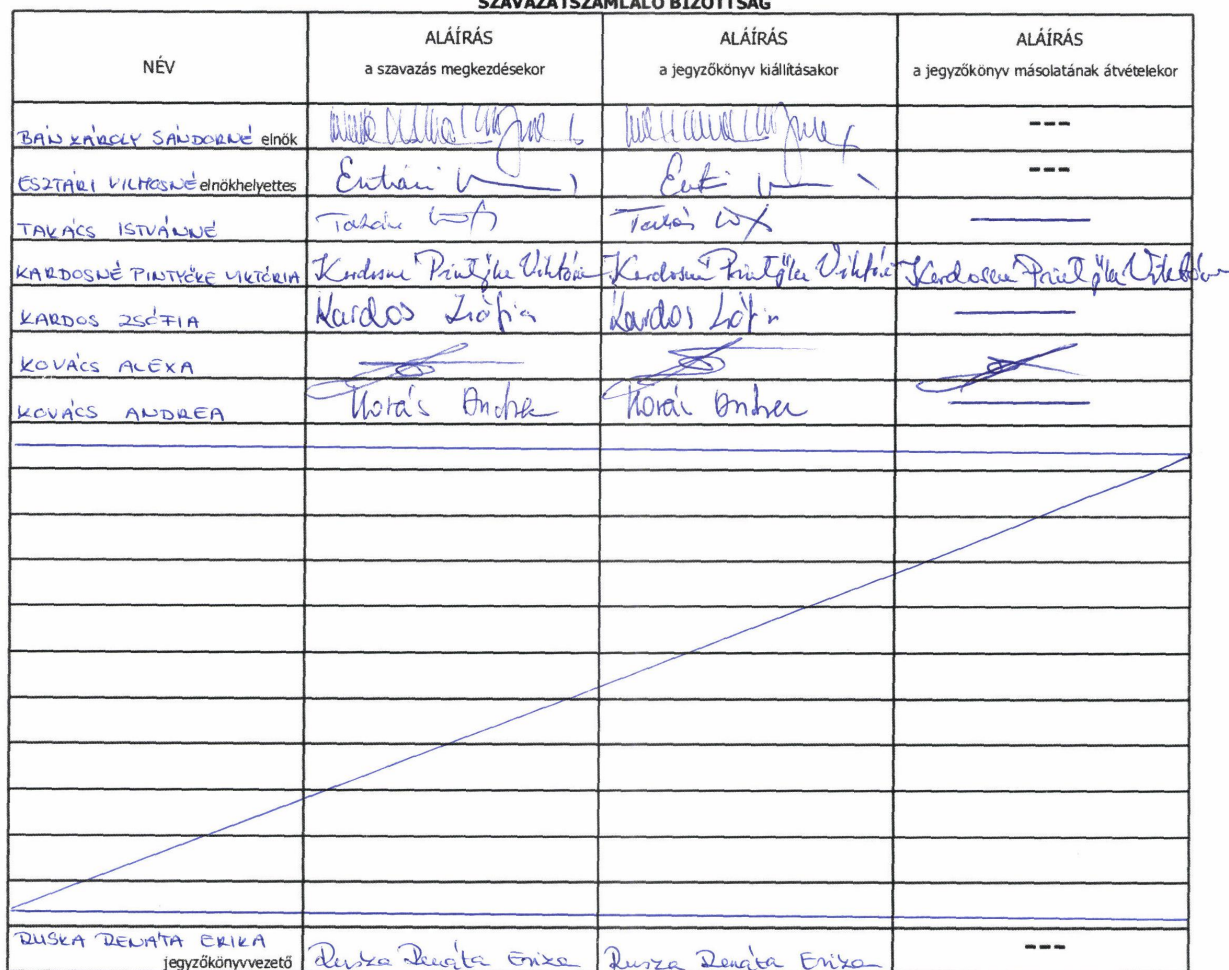 SZAVAZATSZÁMLÁLÓ BIZOTTSÁG
NÉV
ALÁÍRÁS
a szavazás megkezdésekor
ALÁÍRÁS
a jegyzőkönyv kiállításakor
ALÁÍRÁS
a jegyzőkönyv másolatának átvételekor
BÁN KÁROLY SÁNDORNÉ elnök ---
ESZTÁRI VILMOSNÉ elnökhelyettes ---
TAKÁCS ISTVÁNNÉ
KARDOSNÉ PINTYŐKE VIKTÓRIA Kardosné Pintyőke Viktória Kardosné Pintyőke Viktória Kardosné Pintyőke Viktória
KARDOS ZSÓFIA Kardos Zsófia Kardos Zsófia
KOVÁCS ALEXA
KOVÁCS ANDREA Kovács Andrea Kovács Andrea
RUSKA RENÁTA ERIKA
jegyzőkönyvvezető Ruska Renáta Erika Ruska Renáta Erika ---